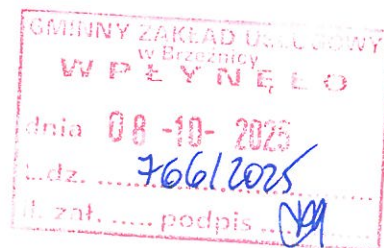 GMINNY ZAKŁAD USŁUGOWY
w Brzeźnicy
WPŁYNĘŁO
dnia 08 -10- 2025
L.dz. ...766/2025...
il. zał. ...... podpis ...